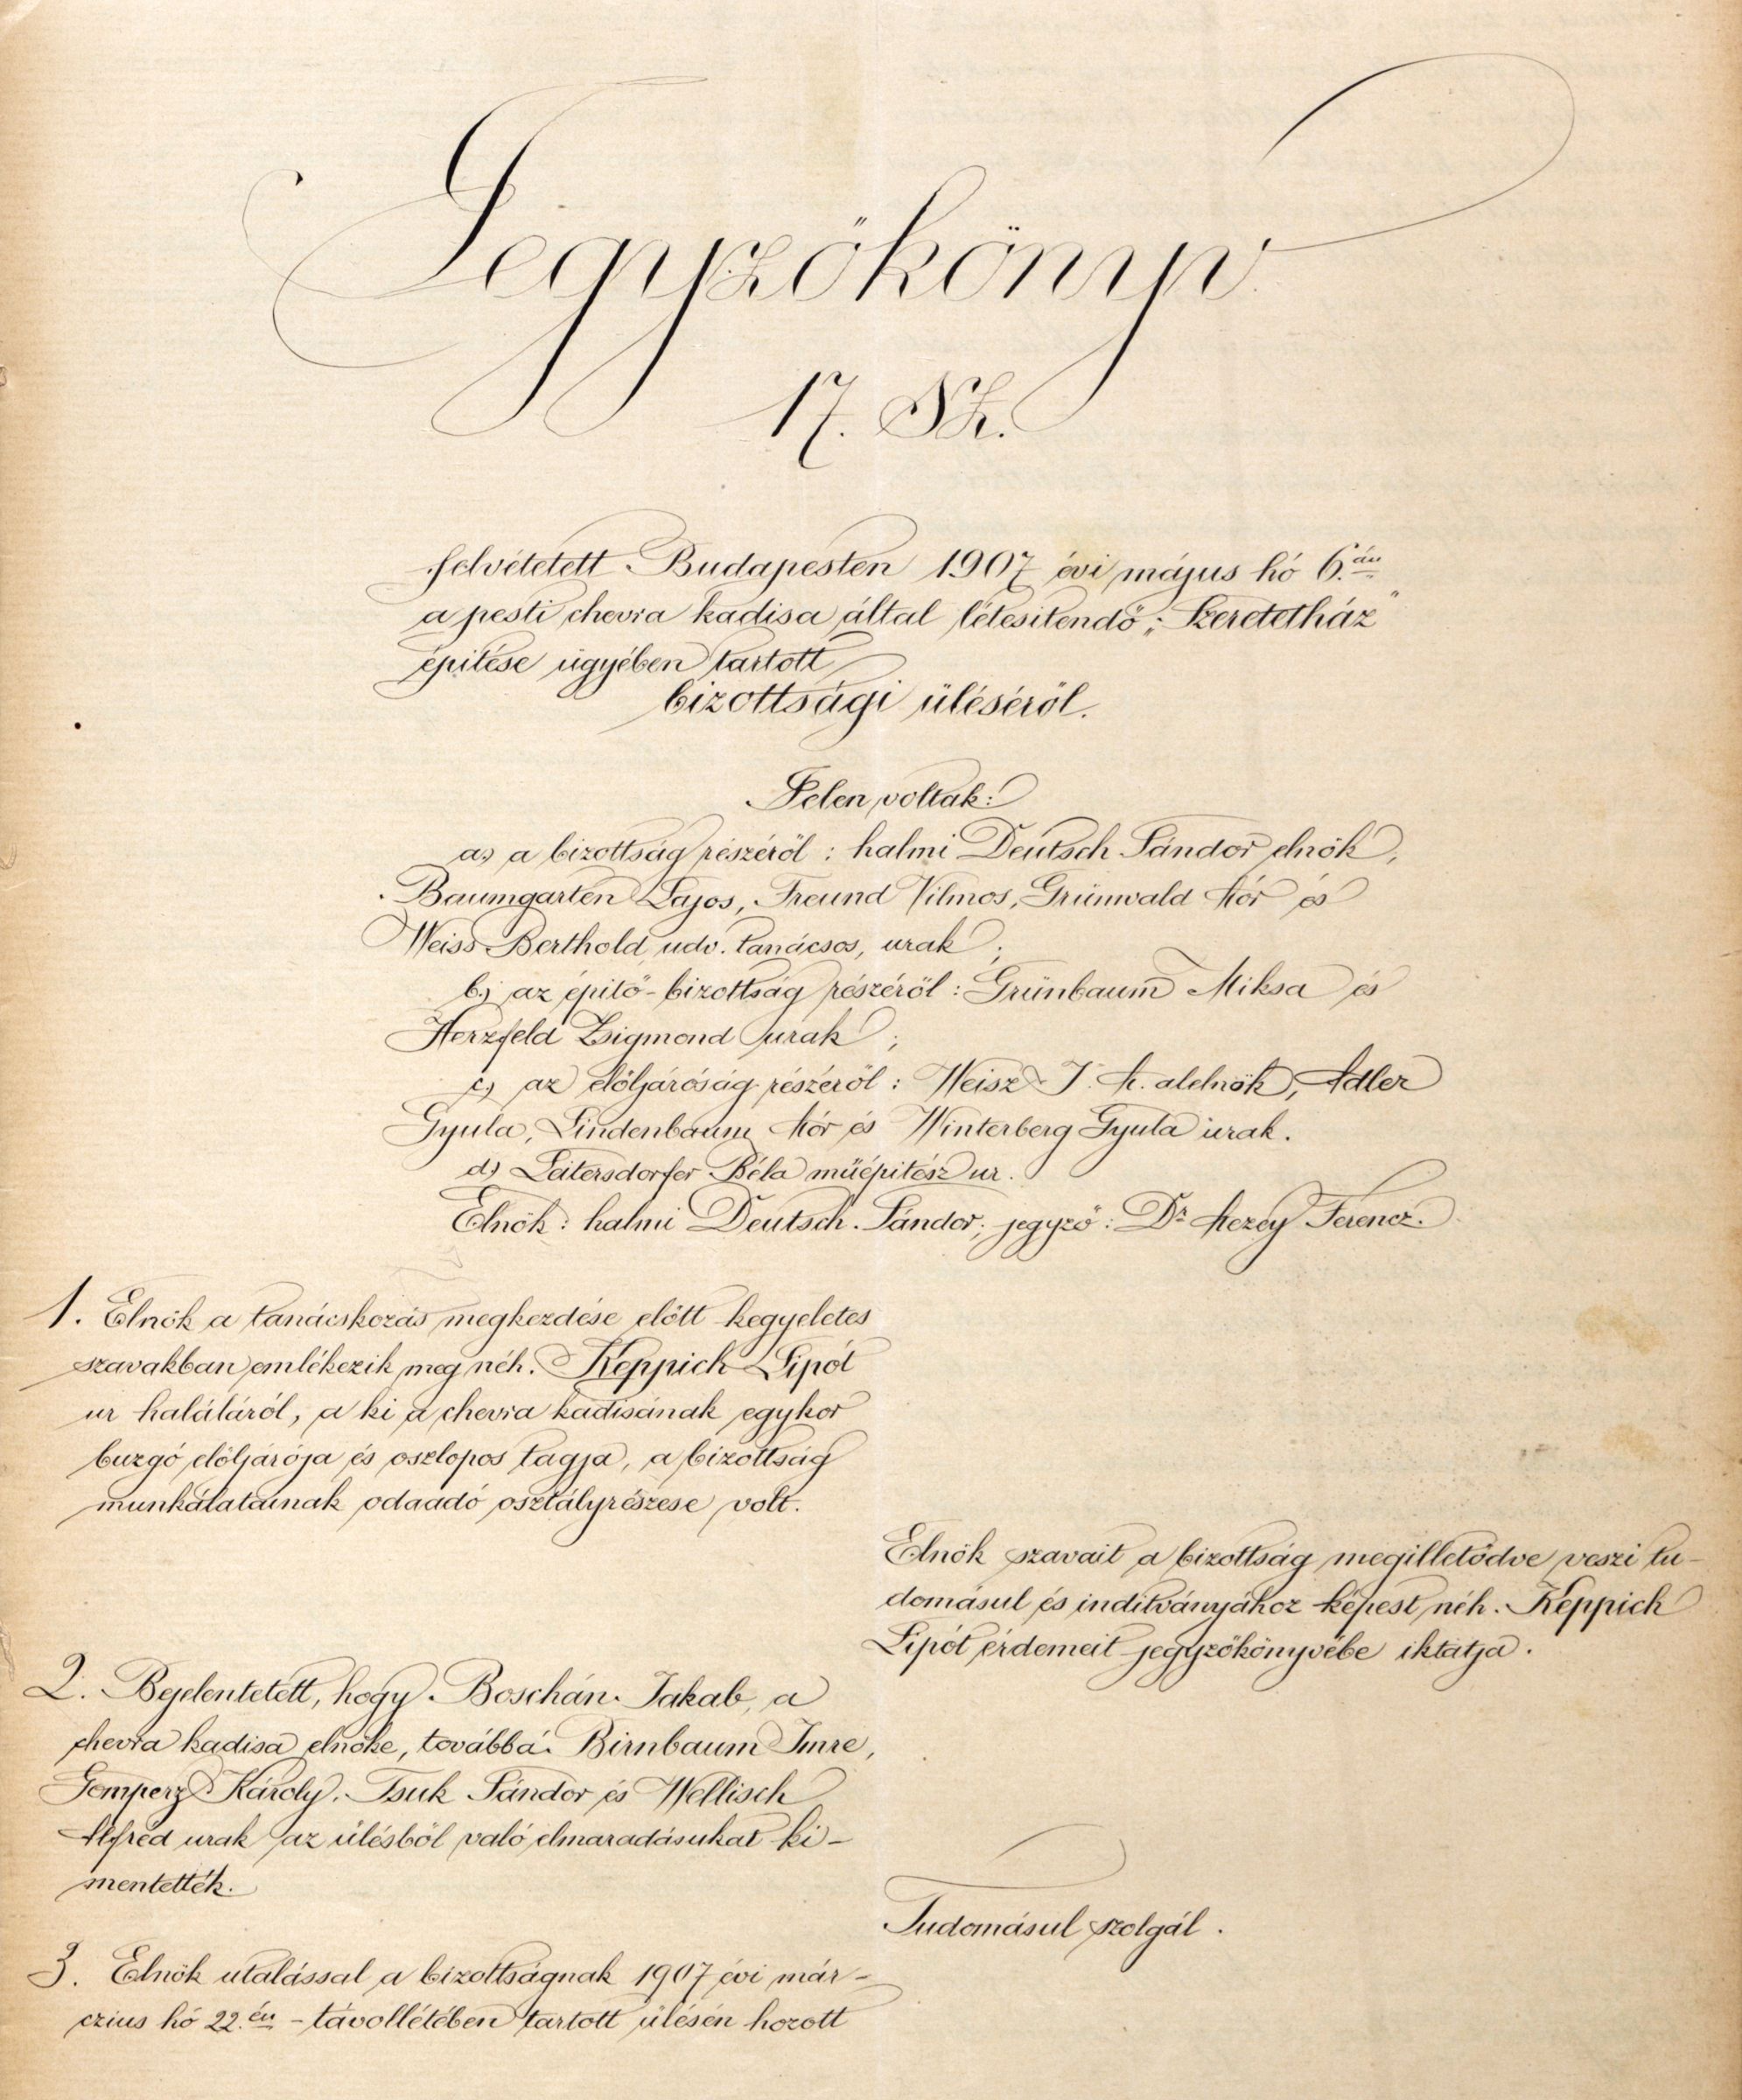 Jegyzőkönyv
17. Sz.
felvétetett Budapesten 1907 évi május hó 6.án
a pesti chevra kadisa által létesitendő „Szeretetház"
épitése ügyében tartott
bizottsági üléséről.
Jelen voltak:
a) a bizottság részéről : halmi Deutsch Sándor elnök,
Baumgarten Lajos, Freund Vilmos, Grünwald Mór és
Weiss Berthold udv. tanácsos, urak ;
b) az épitő-bizottság részéről : Grünbaum Miksa és
Herzfeld Zsigmond urak ;
c) az előljáróság részéről : Weisz J. M. alelnök, Adler
Gyula, Lindenbaum Mór és Winterberg Gyula urak.
d) Leitersdorfer Béla műépitész ur.
Elnök : halmi Deutsch Sándor; jegyző : Dr Mezey Ferencz.
1. Elnök a tanácskozás megkezdése előtt kegyeletes
szavakban emlékezik meg néh. Keppich Lipót
ur haláláról, a ki a chevra kadisának egykor
buzgó előljárója és oszlopos tagja, a bizottság
munkálatainak odaadó osztályrészese volt.
Elnök szavait a bizottság megilletődve veszi tu-
domásul és inditványához képest néh. Keppich
Lipót érdemeit jegyzőkönyvébe iktatja.
2. Bejelentetett, hogy Boschán Jakab, a
chevra kadisa elnöke, továbbá Birnbaum Imre,
Gomperz Károly, Tsuk Sándor és Wellisch
Alfréd urak az ülésből való elmaradásukat ki-
mentették.
Tudomásul szolgál.
3. Elnök utalással a bizottságnak 1907 évi már-
czius hó 22.én - távollétében tartott ülésén hozott